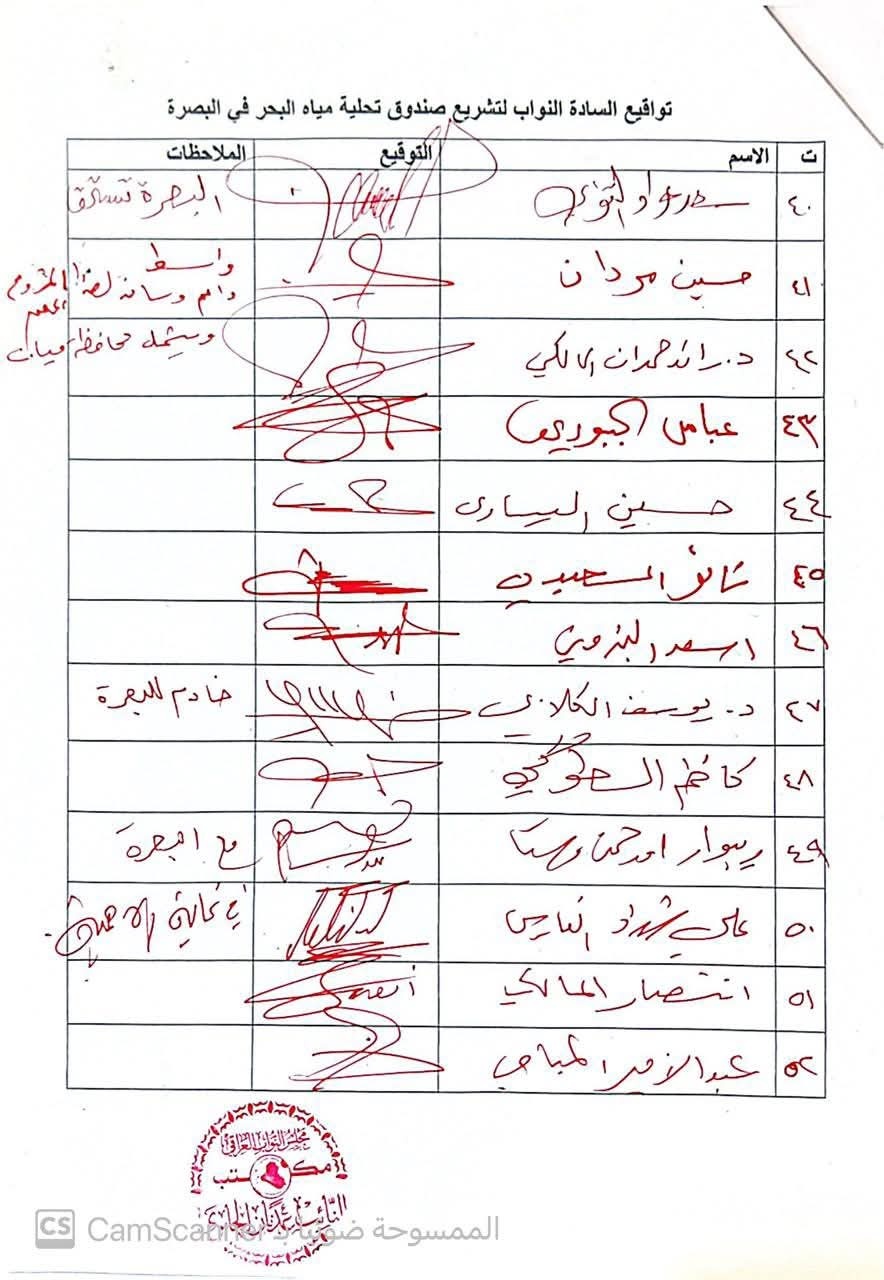 تواقيع السادة النواب لتشريع صندوق تحلية مياه البحر في البصرة
ت الاسم التوقيع الملاحظات
٤٠ البصرة تستحق
٤١ حسين مردان واسط
٤٢ د. رائد حمدان المالكي ويشمل محافظة ميسان
٤٣ عباس الجبوري
٤٤ حسين اليساري
٤٥
٤٦ اسعد البزوني
٤٧ د. يوسف الكلابي خادم للبصرة
٤٨ كاظم
٤٩ ريبوار مع البصرة
٥٠ علي شداد الفارس في غاية الاهمية
٥١ انتصار المالكي
٥٢ عبد الأمير المياحي
مجلس النواب العراقي
مكتب
النائب
CS CamScanner الممسوحة ضوئيا بـ